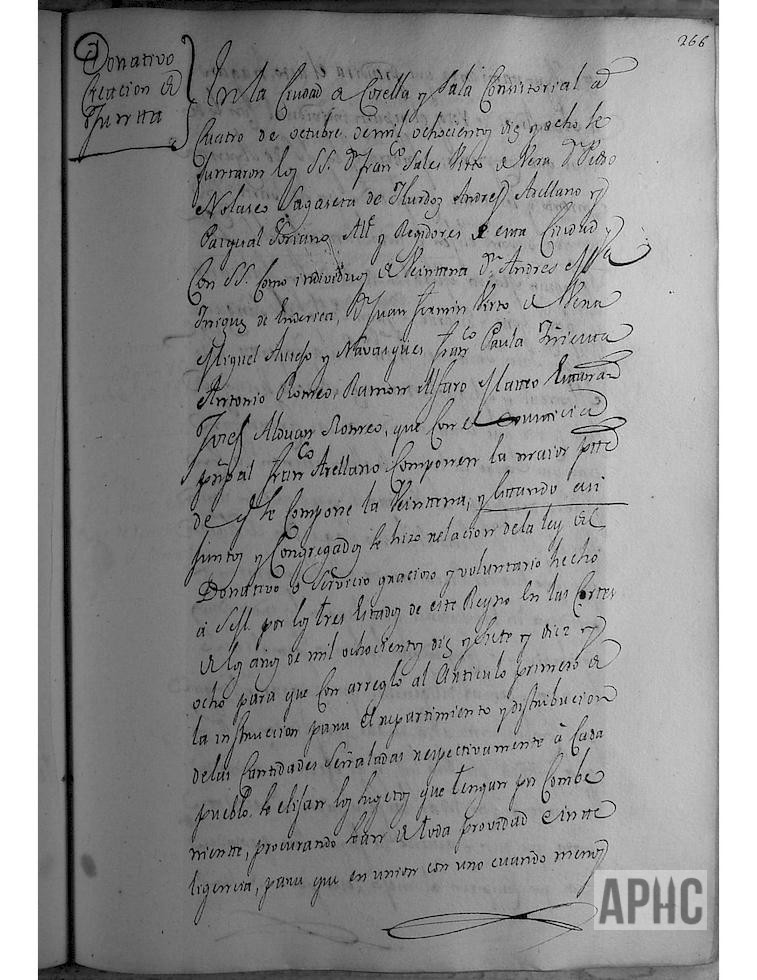 266
Donativo
Creacion de
Juntta
En la Ciudad de Corella y Sala Consistorial a
Cuatro de octubre de mil ochocientos diez y ocho se
Juntaron los SS. Dn Franco Sales Virto de Vera Dn Pedro
Nolasco Sagaseta de Ilurdoz Andres Arellano y
Pasqual Soriano Alle y Regidores de esta Ciudad y
Con SS. Como individuos de Veintena Dn Andres Ma
Iniguez de Enderica, Dn Juan Fermin Virto de Vera
Miguel y Navasques Franco Paula
Antonio Romeo, Ramon Alfaro Matteo
Josef Alduan Romeo, que Con el
pñpal Franco Arellano Componen la maior ptte
de q se Compone la Veinttena, y esttando asi
Juntos y Congregados se hizo relacion de la ley del
Donattivo o Servicio gracioso y voluntario hecho
a S.M. por los tres Estados de este Reyno En las Cortes
de los años de mil ochocientos diez y siete y diez y
ocho para que Con arreglo al Articulo primero de
la instruccion para el repartimiento y distribucion
de las Cantidades Señaladas respectivamente à Cada
pueblo, se elijan los Sugetos que tengan por Combe
niente, procurando sean de toda providad e intte
ligencia, para que en union con uno cuando menos
APHC